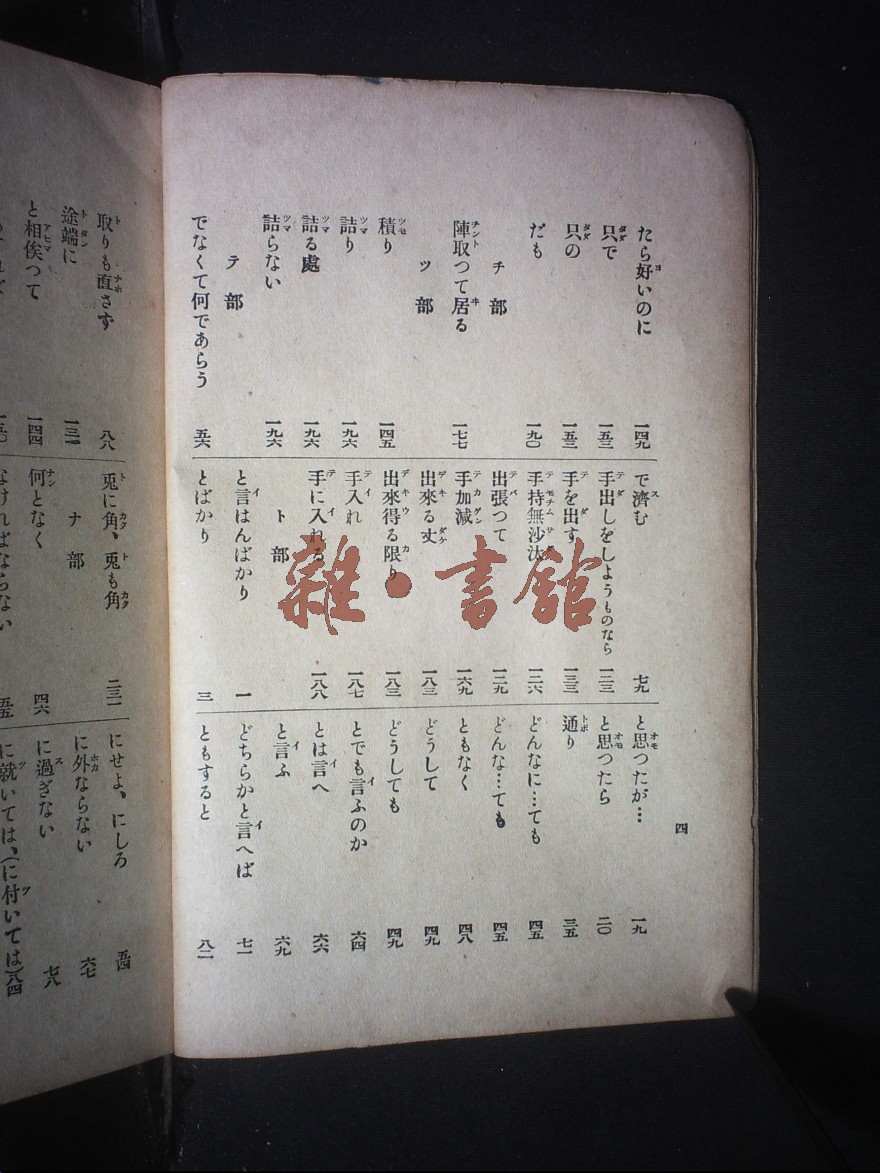 四
たら好いのに 一四九
只で 一五三
只の 一五三
だも 一九〇
チ部
陣取つて居る 一七七
ツ部
積り 一四五
詰り 一九六
詰る處 一九六
詰らない 一九六
テ部
でなくて何であらう 五六
で濟む 七九
手出しをしようものなら 一二三
手を出す 一三三
手持無沙汰 一三六
出張つて 一二九
手加減 一六九
出來る丈 一八三
出來得る限り 一八三
手入れ 一八七
手に入れる 一八八
ト部
と言はんばかり 一
とばかり 三
と思つたが… 一九
と思つたら 二〇
通り 三五
どんなに…ても 四五
どんな…ても 四五
ともなく 四八
どうして 四九
どうしても 四九
とでも言ふのか 六四
とは言へ 六六
と言ふ 六九
どちらかと言へば 七一
ともすると 八二
取りも直さず 八八
途端に 一三一
と相俟つて 一四四
兎に角、兎も角 二三一
ナ部
何となく 四六
なければならない 五五
にせよ、にしろ 五四
に外ならない 六七
に過ぎない 七八
に就いては、(に付いては) 八四
雜·書館